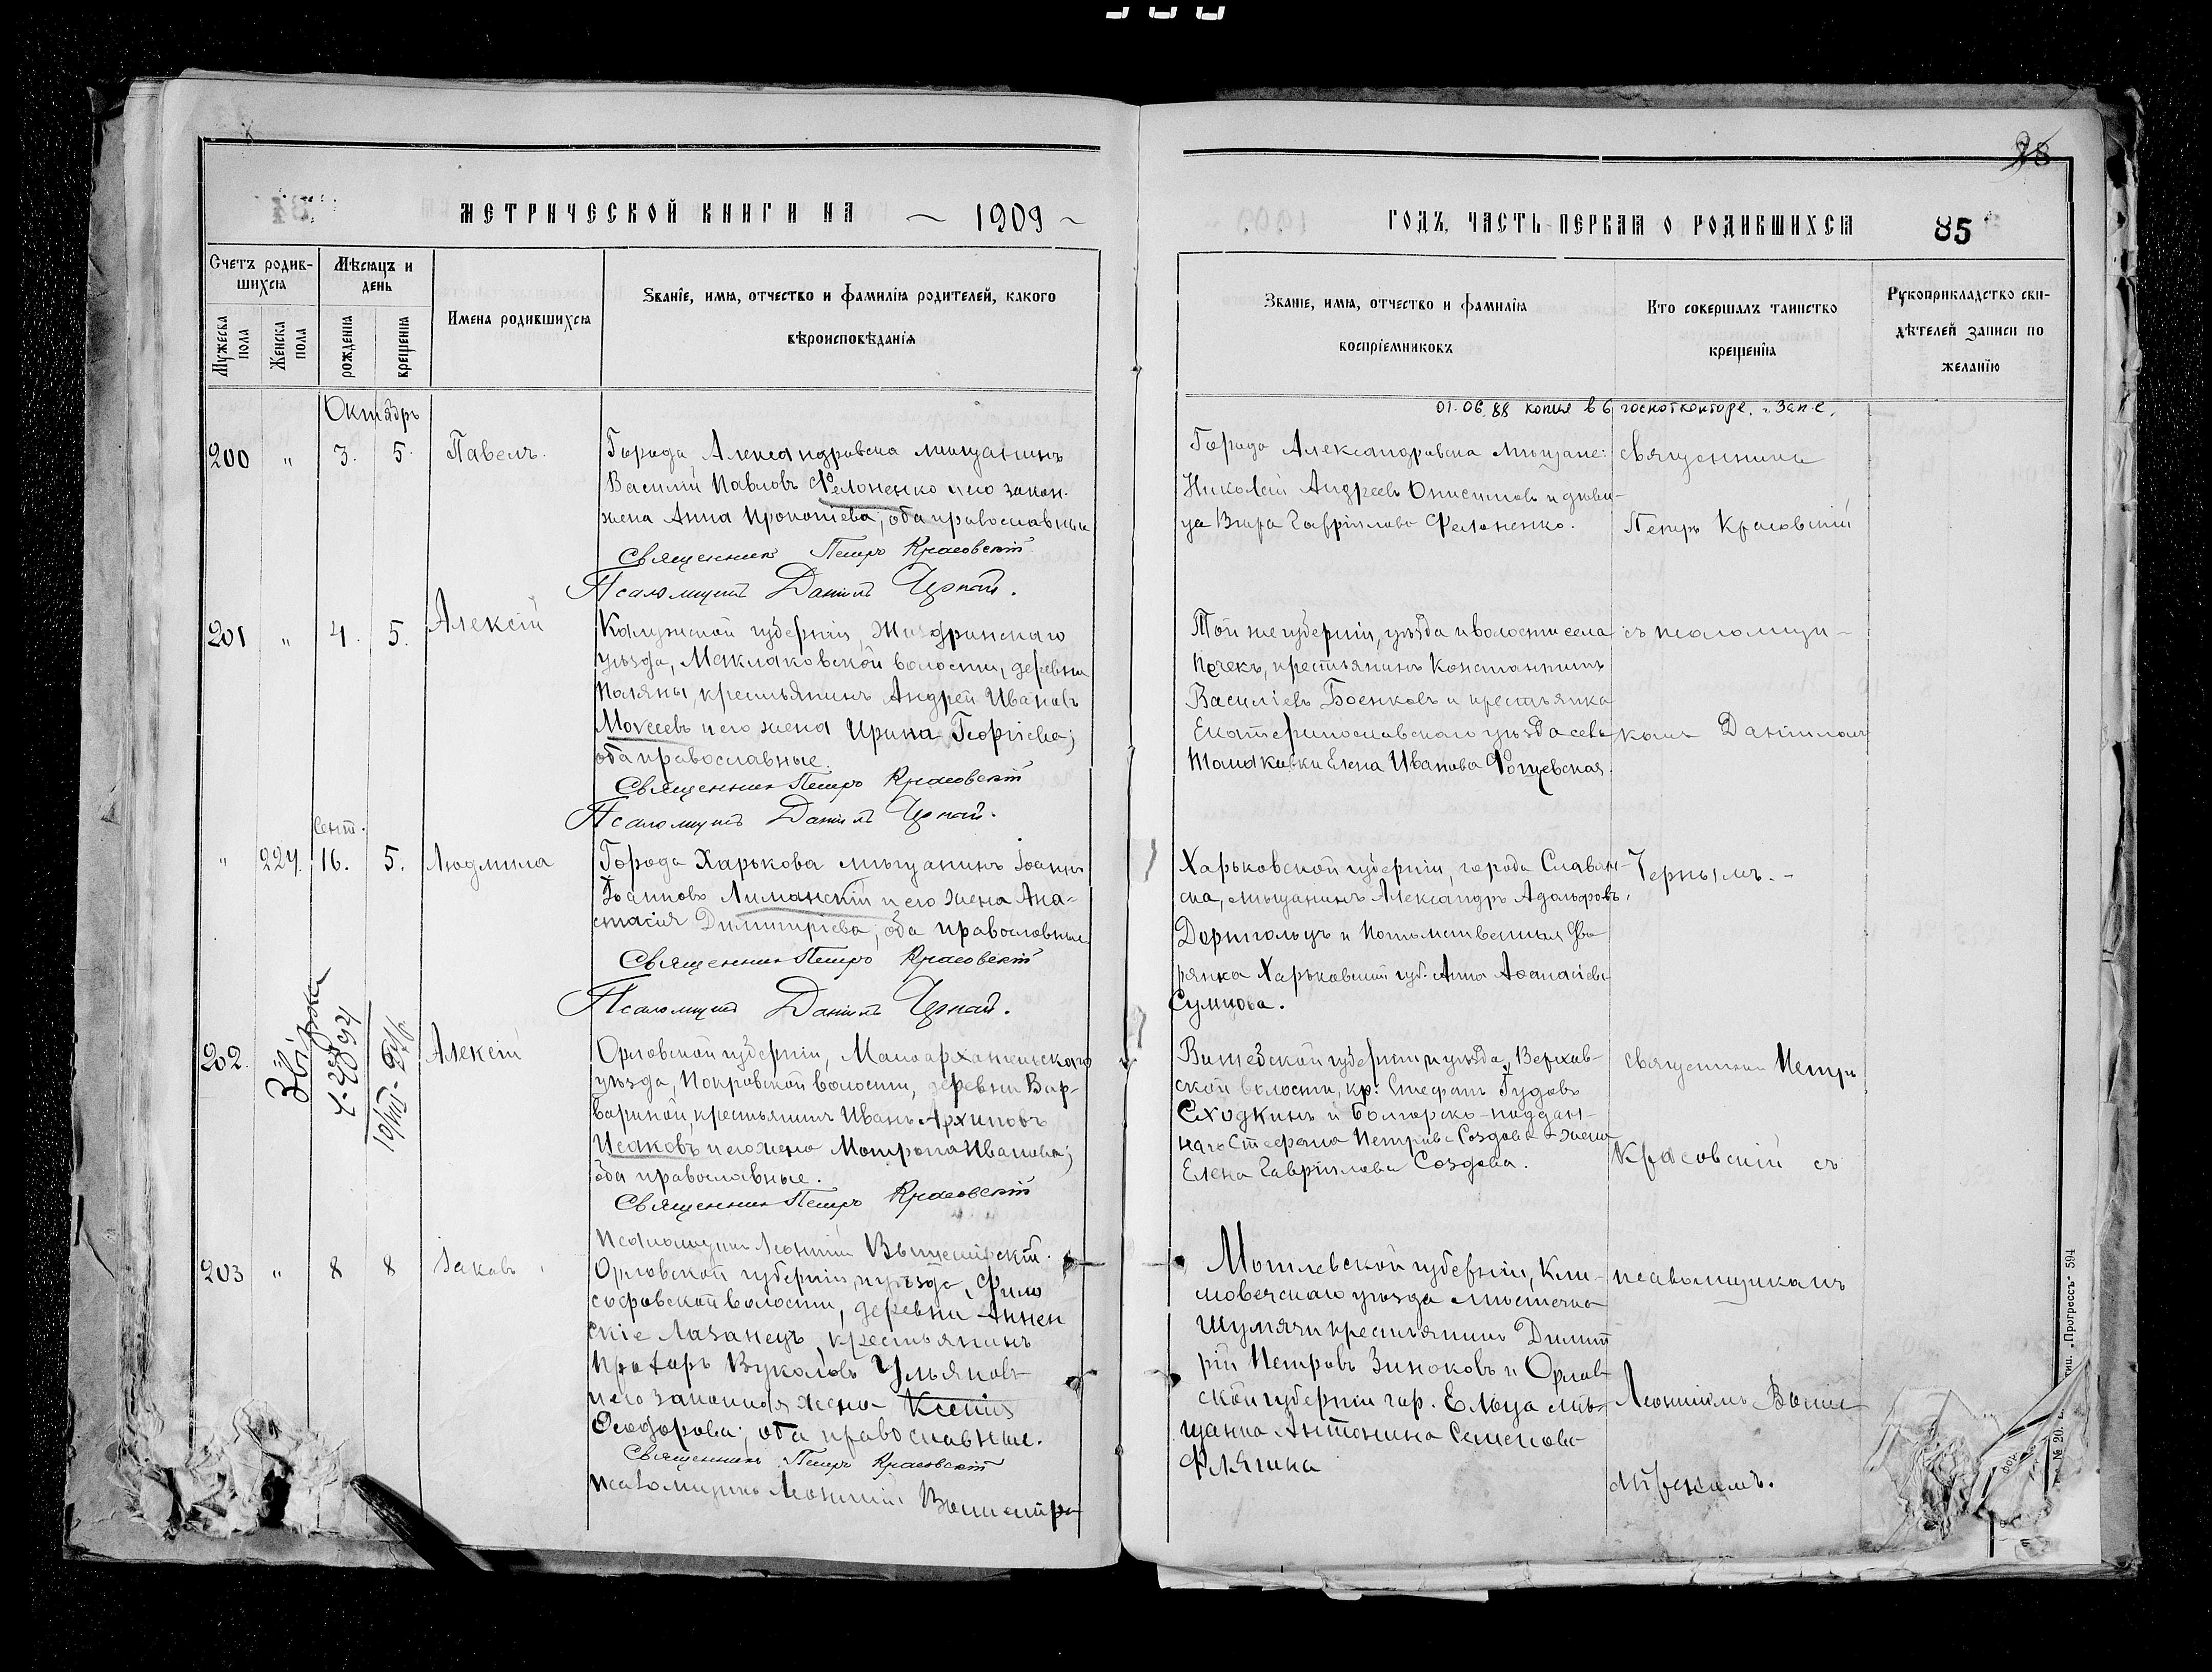 МЕТРИЧЕСКОЙ КНИГИ НА ~ 1909 ~
Счетъ родив-
шихся
Мужеска пола
Женска пола
Мѣсяцъ и
день
рожденія
крещенія
Имена родившихся
Званіе, имя, отчество и фамилія родителей, какого
вѣроисповѣданія
Октябрь
200 " 3. 5. Павелъ.
Города Александровска мѣщанинъ
Василій Павловъ Фелоненко и его закон.
жена Анна Прокопіева; оба православные
Священник Петръ Красовскій
Псаломщикъ Даніилъ Черный.
201 " 4. 5. Алексій
Калужской губерніи, Жиздринскаго
уѣзда, Маклаковской волости, деревни
Поляны, крестьянинъ Андрей Ивановъ
Мосеевъ и его жена Ирина Георгіева;
оба православные.
Священник Петръ Красовскій
Псаломщикъ Даніилъ Черный.
Сент.
" 227. 16. 5. Людмила
Города Харькова мѣщанинъ Іоаннъ
Іоанновъ Лиманскій и его жена Ана-
стасія Димитріева; оба православные
Священник Петръ Красовскій
Псаломщикъ Даніилъ Черный.
202. Звірка
Алексій
Орловской губерніи, Малоархангельскаго
уѣзда, Покровской волости, деревни Вар-
вариной, крестьянинъ Иванъ Архиповъ
Исаковъ и его жена Матрона Иванова;
оба православные.
Священник Петръ Красовскій
203 " 8 8 Іаковъ
Псаломщикъ Леонтій
Орловской губерніи, и уѣзда, Фило
софовской волости, деревни Аннен
скіе Лазанецъ, крестьянинъ
Вуколовъ Ульяновъ
и его законная жена Ксенія
Ѳеодорова; оба православные.
Священник Петръ Красовскій
Псаломщикъ Леонтій
ГОДЪ, ЧАСТЬ ПЕРВАЯ О РОДИВШИХСЯ 85
Званіе, имя, отчество и фамилія
воспріемниковъ
Кто совершалъ таинство
крещенія
Рукоприкладство сви-
дѣтелей записи по
желанію
01.06.88 копия в 6 госнотконторе. г. Зап-е.
Города Александровска мѣщане:
Николай Андреевъ Онисимовъ и дѣви-
ца Вѣра Гавріилова Фелоненко.
Священникъ
Петръ Красовскій
Той же губерніи, уѣзда и волости села
Почекъ, крестьянинъ Константинъ
Василіевъ Боенковъ и крестьянка
Екатеринославскаго уѣзда села
Томаковки Елена Иванова
съ псаломщи-
комъ Даніиломъ
Харьковской губерніи, города Славян-
ска, мѣщанинъ Александръ Адольфовъ
и Потомственная Дво
рянка Харьковской губ. Анна Аѳанасіева
Сумцова.
Чернымъ.-
Витебской губерніи, и уѣзда, Верхов-
ской волости, кр. Стефанъ Гудовъ
Сходкинъ и Болгарско-поддан-
наго Стефана Петрова Создова жена
Елена Гавріилова Создова.
священникъ Петръ
Красовскій съ
Могилевской губерніи, Кли-
мовечскаго уѣзда мѣстечка
Шумячи крестьянинъ Димит
рій Петровъ Зиноковъ и Орлов
ской губерніи гор. Ельца мѣ-
щанка Антонина Семенова
Флягина
псаломщикомъ
Леонтіемъ
тип. „Прогрессъ“ 594